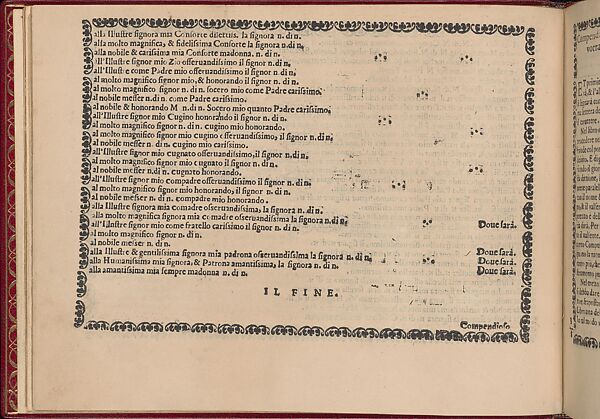 alla Illustre signora mia Consorte dilettiss. la signora n. di n.
alla molto magnifica, & fidelissima Consorte la signora n. di n.
alla nobile & carissima mia Consorte madonna. n. di n.
all'Illustre signor mio Zio osseruandissimo il signor n. di n.
all'Illustre come Padre mio osseruandissimo il signor n. di n.
al molto magnifico signor mio, & honorando il signor n. di n.
al molto magnifico signor n. di n. socero mio come Padre carissimo.
al nobile messer n. di n. come Padre carissimo.
al nobile & honorando M. n. di n. Socero mio quanto Padre carissimo.
all'Illustre signor mio Cugino honorando il signor n. di n.
al molto magnifico signor n. di n. cugino mio honorando.
al molto magnifico signor mio cugino osseruandissimo, il signor n. di n.
al nobile messer n. di n. cugino mio carissimo.
all'Illustre signor mio cugnato osseruandissimo, il signor n. di n.
al molto magnifico signor mio cugnato il signor n. di n.
al nobile messer n. di n. cugnato honorando.
all'Illustre signor mio compadre osseruandissimo il signor n. di n.
al molto magnifico signor mio honorando, il signor n. di n.
al nobile messer n. di n. compadre mio honorando.
alla Illustre signora mia comadre osseruandissima, la signora n. di n.
alla molto magnifica signora mia comadre osseruandissima la signora n. di n.
all'Illustre signor mio come fratello carissimo il signor n. di n. Doue sarà.
al molto magnifico signor n. di n.
al nobile messer n. di n.
alla Illustre & gentilissima signora mia padrona osseruandissima la signora n. di n. Doue sarà.
alla Humanissima mia signora, & Patrona amantissima, la signora n. di n. Doue sarà.
alla amantissima mia sempre madonna n. di n. Doue sarà.
IL FINE.
Compendioso